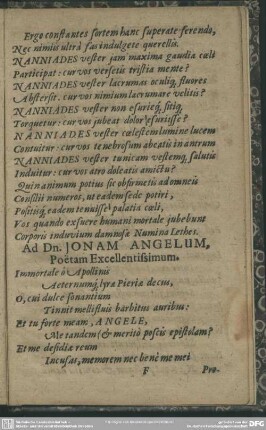 Ergo constantes sortem hanc superate ferendo,
Nec nimiis ultrà fas indulgete querelis.
NANNIADES vester jam maxima gaudia cœli
Participat: cur vos versetis tristia mente?
NANNIADES vester lacrumas oculiq; fluores
Abstersit: cur vos nimium lacrumare velitis?
NANNIADES vester non esurieq; sitiq;
Torquetur: cur vos jubeat dolor esurisse?
NANNIADES vester cælestem lumine lucem
Contuitur: cur vos tenebrosum abeatis in antrum
NANNIADES vester tunicam vestemq; salutis
Induitur: cur vos atro doleatis amictu?
Quin animum potius sic obfirmetis ad omneis
Consilii numeros, ut eadem sede potiri,
Positisq; eadem tenuisse palatia cœli,
Vos quando exsuere humani mortale jubebunt
Corporis induvium damnosæ Numina Lethes.
Ad Dn. JONAM ANGELUM,
Poëtam Excellentissimum.
Immortale ô Apollinis
Aeternumq; lyræ Pieriæ decus,
O, cui dulce sonantium
Tinnit mellifluis barbitus auribus:
Et tu forte meam, ANGELE,
Me tandem (& meritò poscis epistolam?
Et me desidiæ reum
Incusas, memorem nec benè me mei
F
Pro-